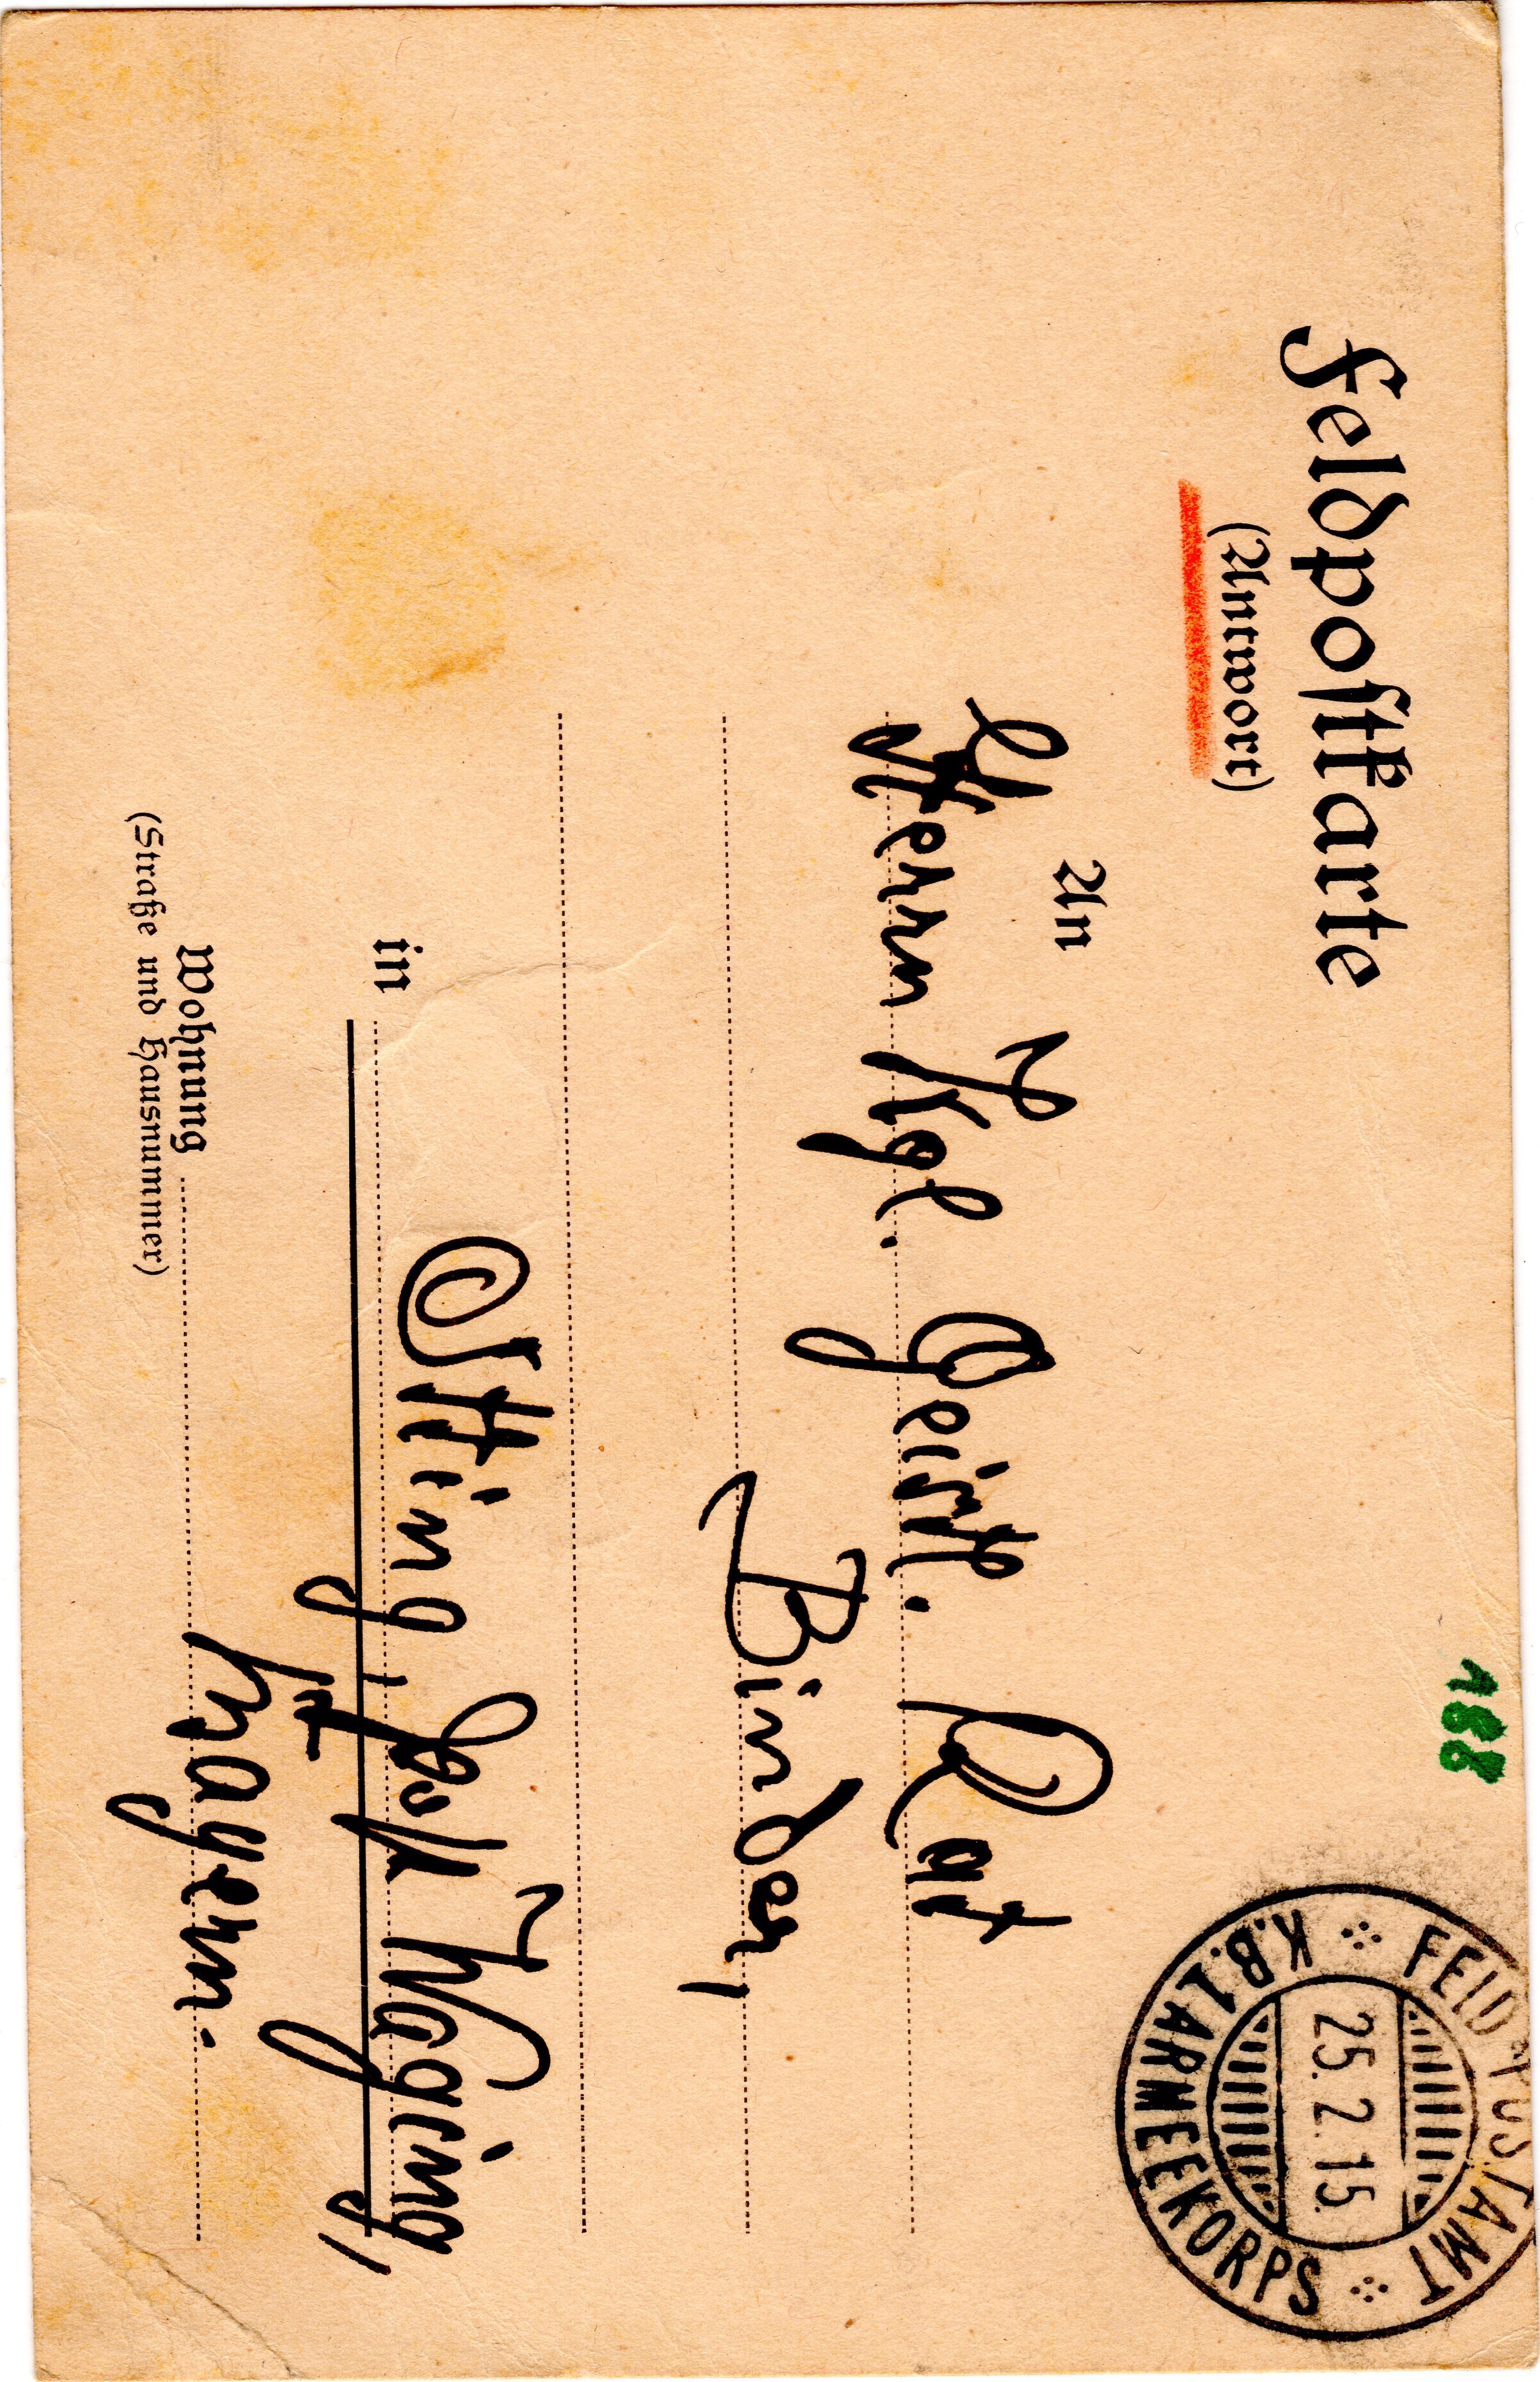 Feldpostkarte
(Antwort)
188
FELDPOSTAMT
25.2.15.
K.B.1 ARMEEKORPS
An
Herrn Kgl. Geistl. Rat
Binder,
in Otting, Post Waging,
Bayern.
Wohnung
(Straße und Hausnummer)